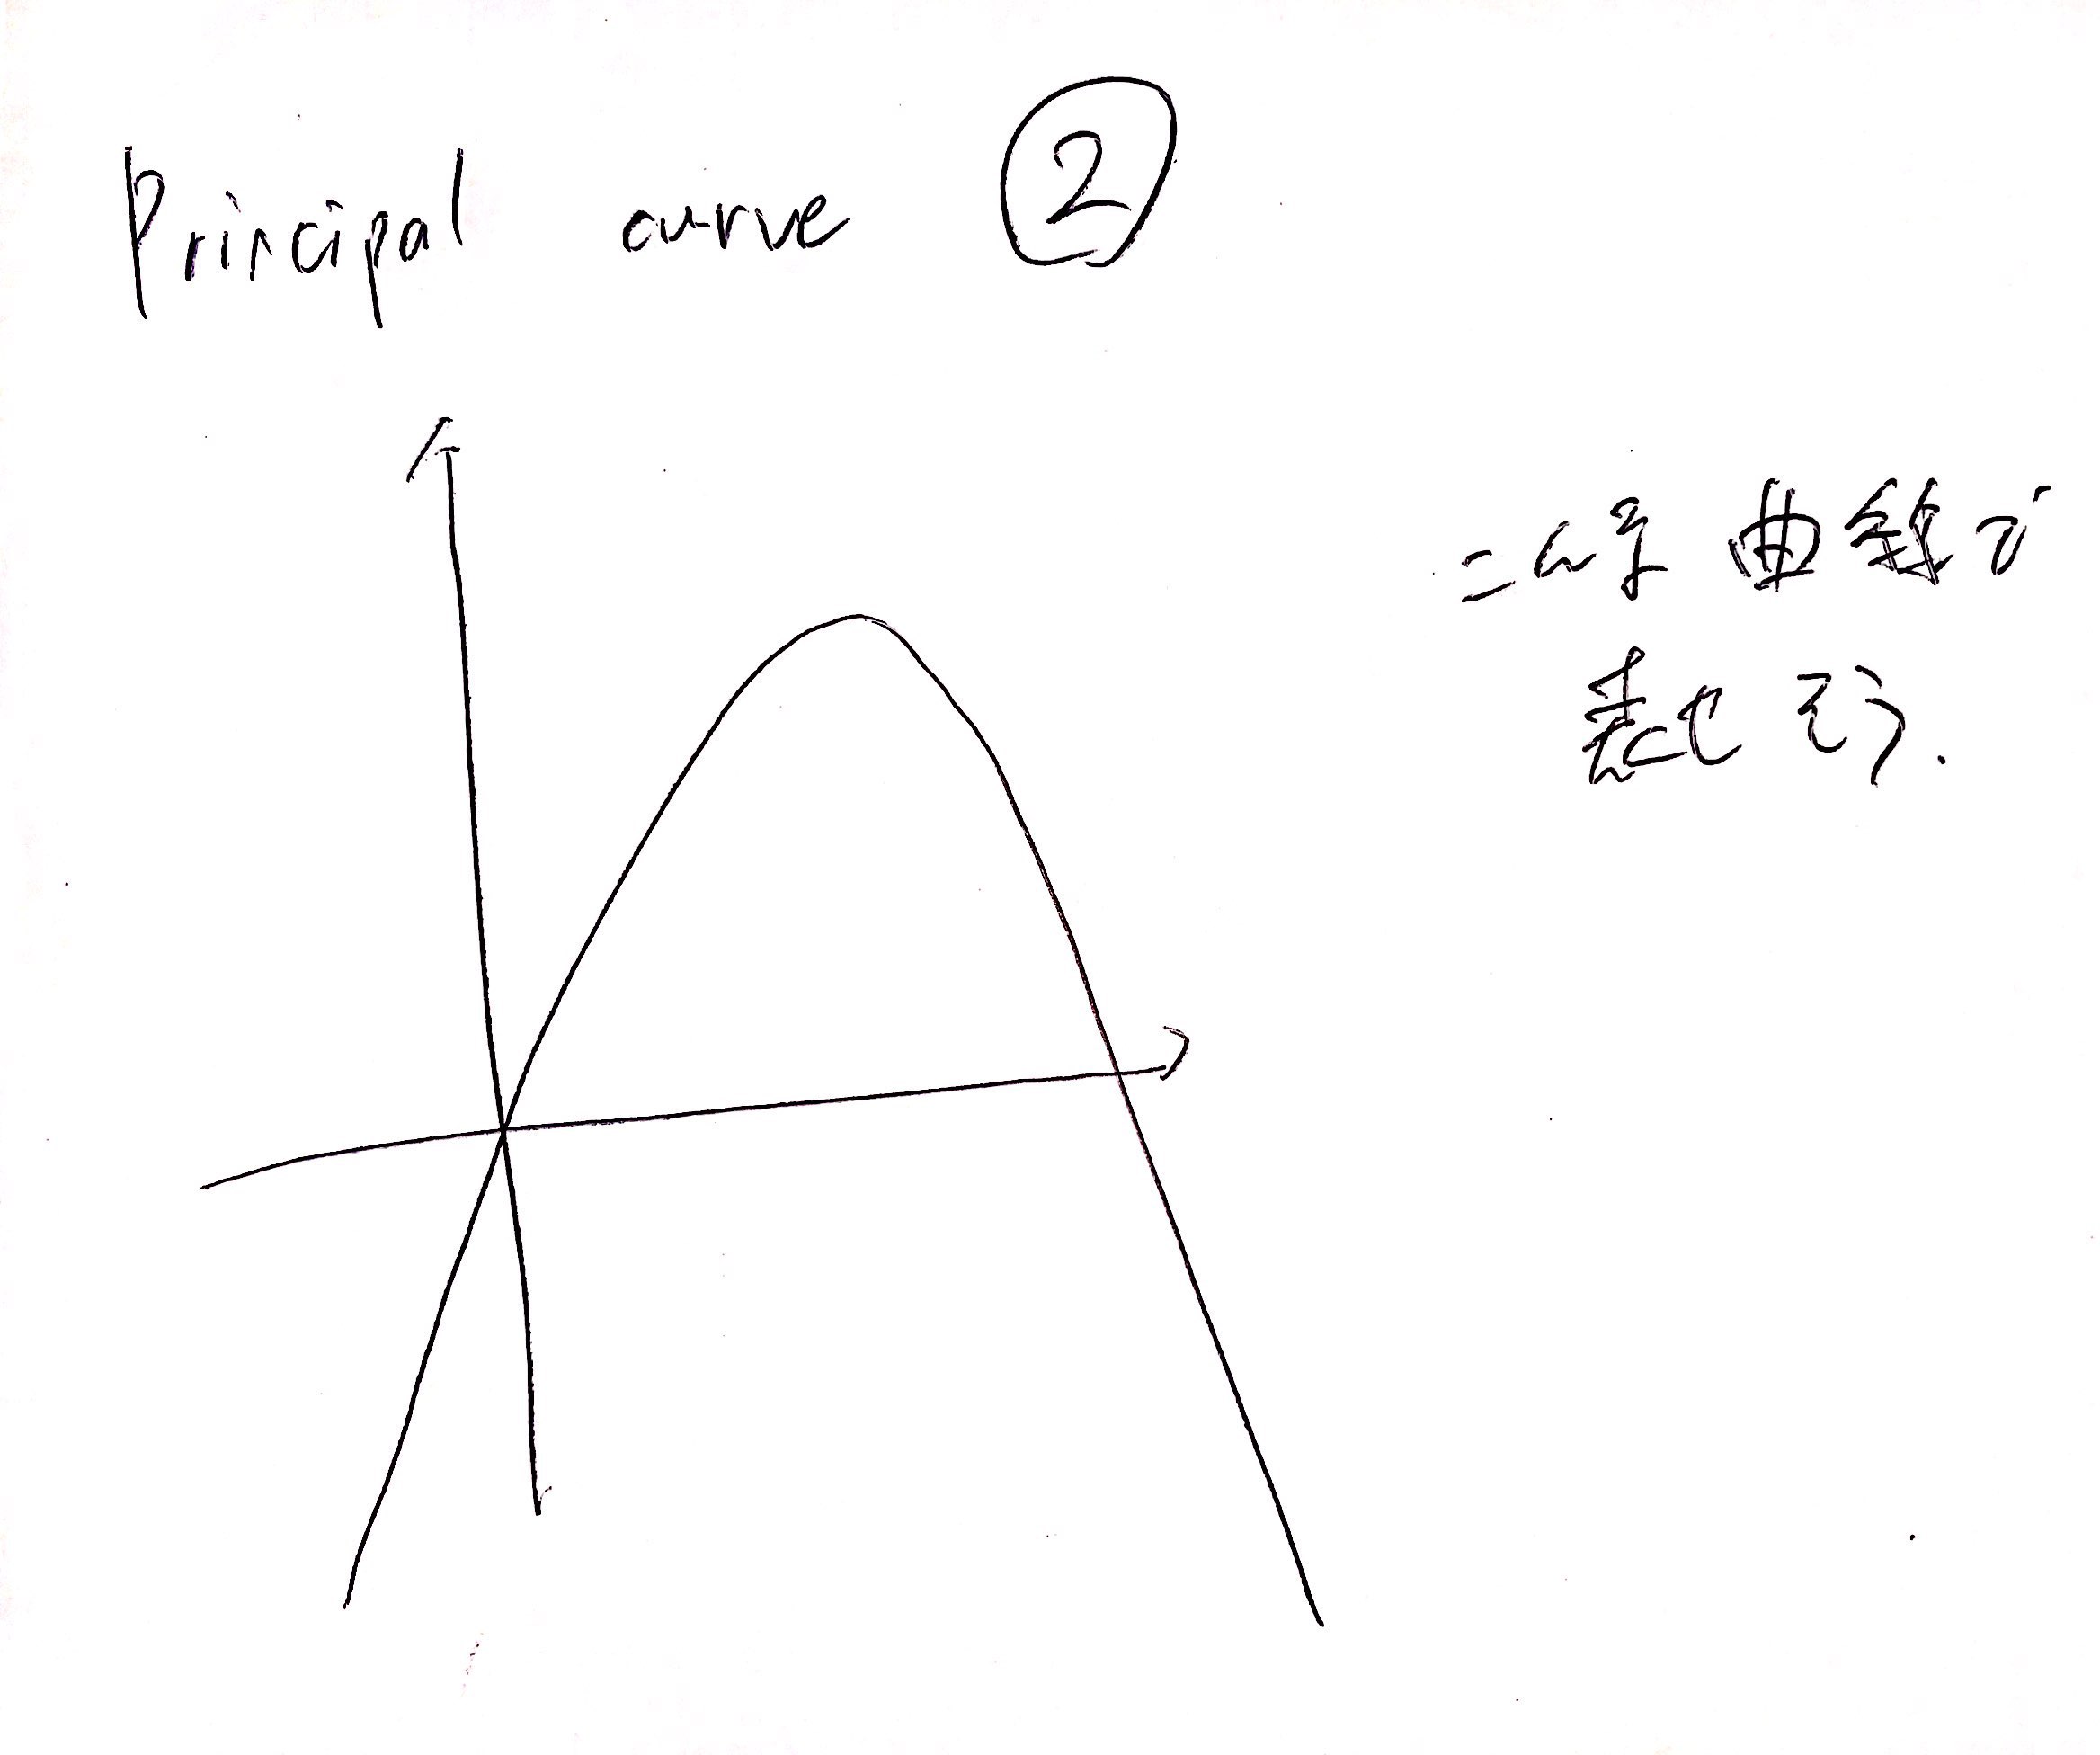 Principal curve ②
曲線で
表せそう.